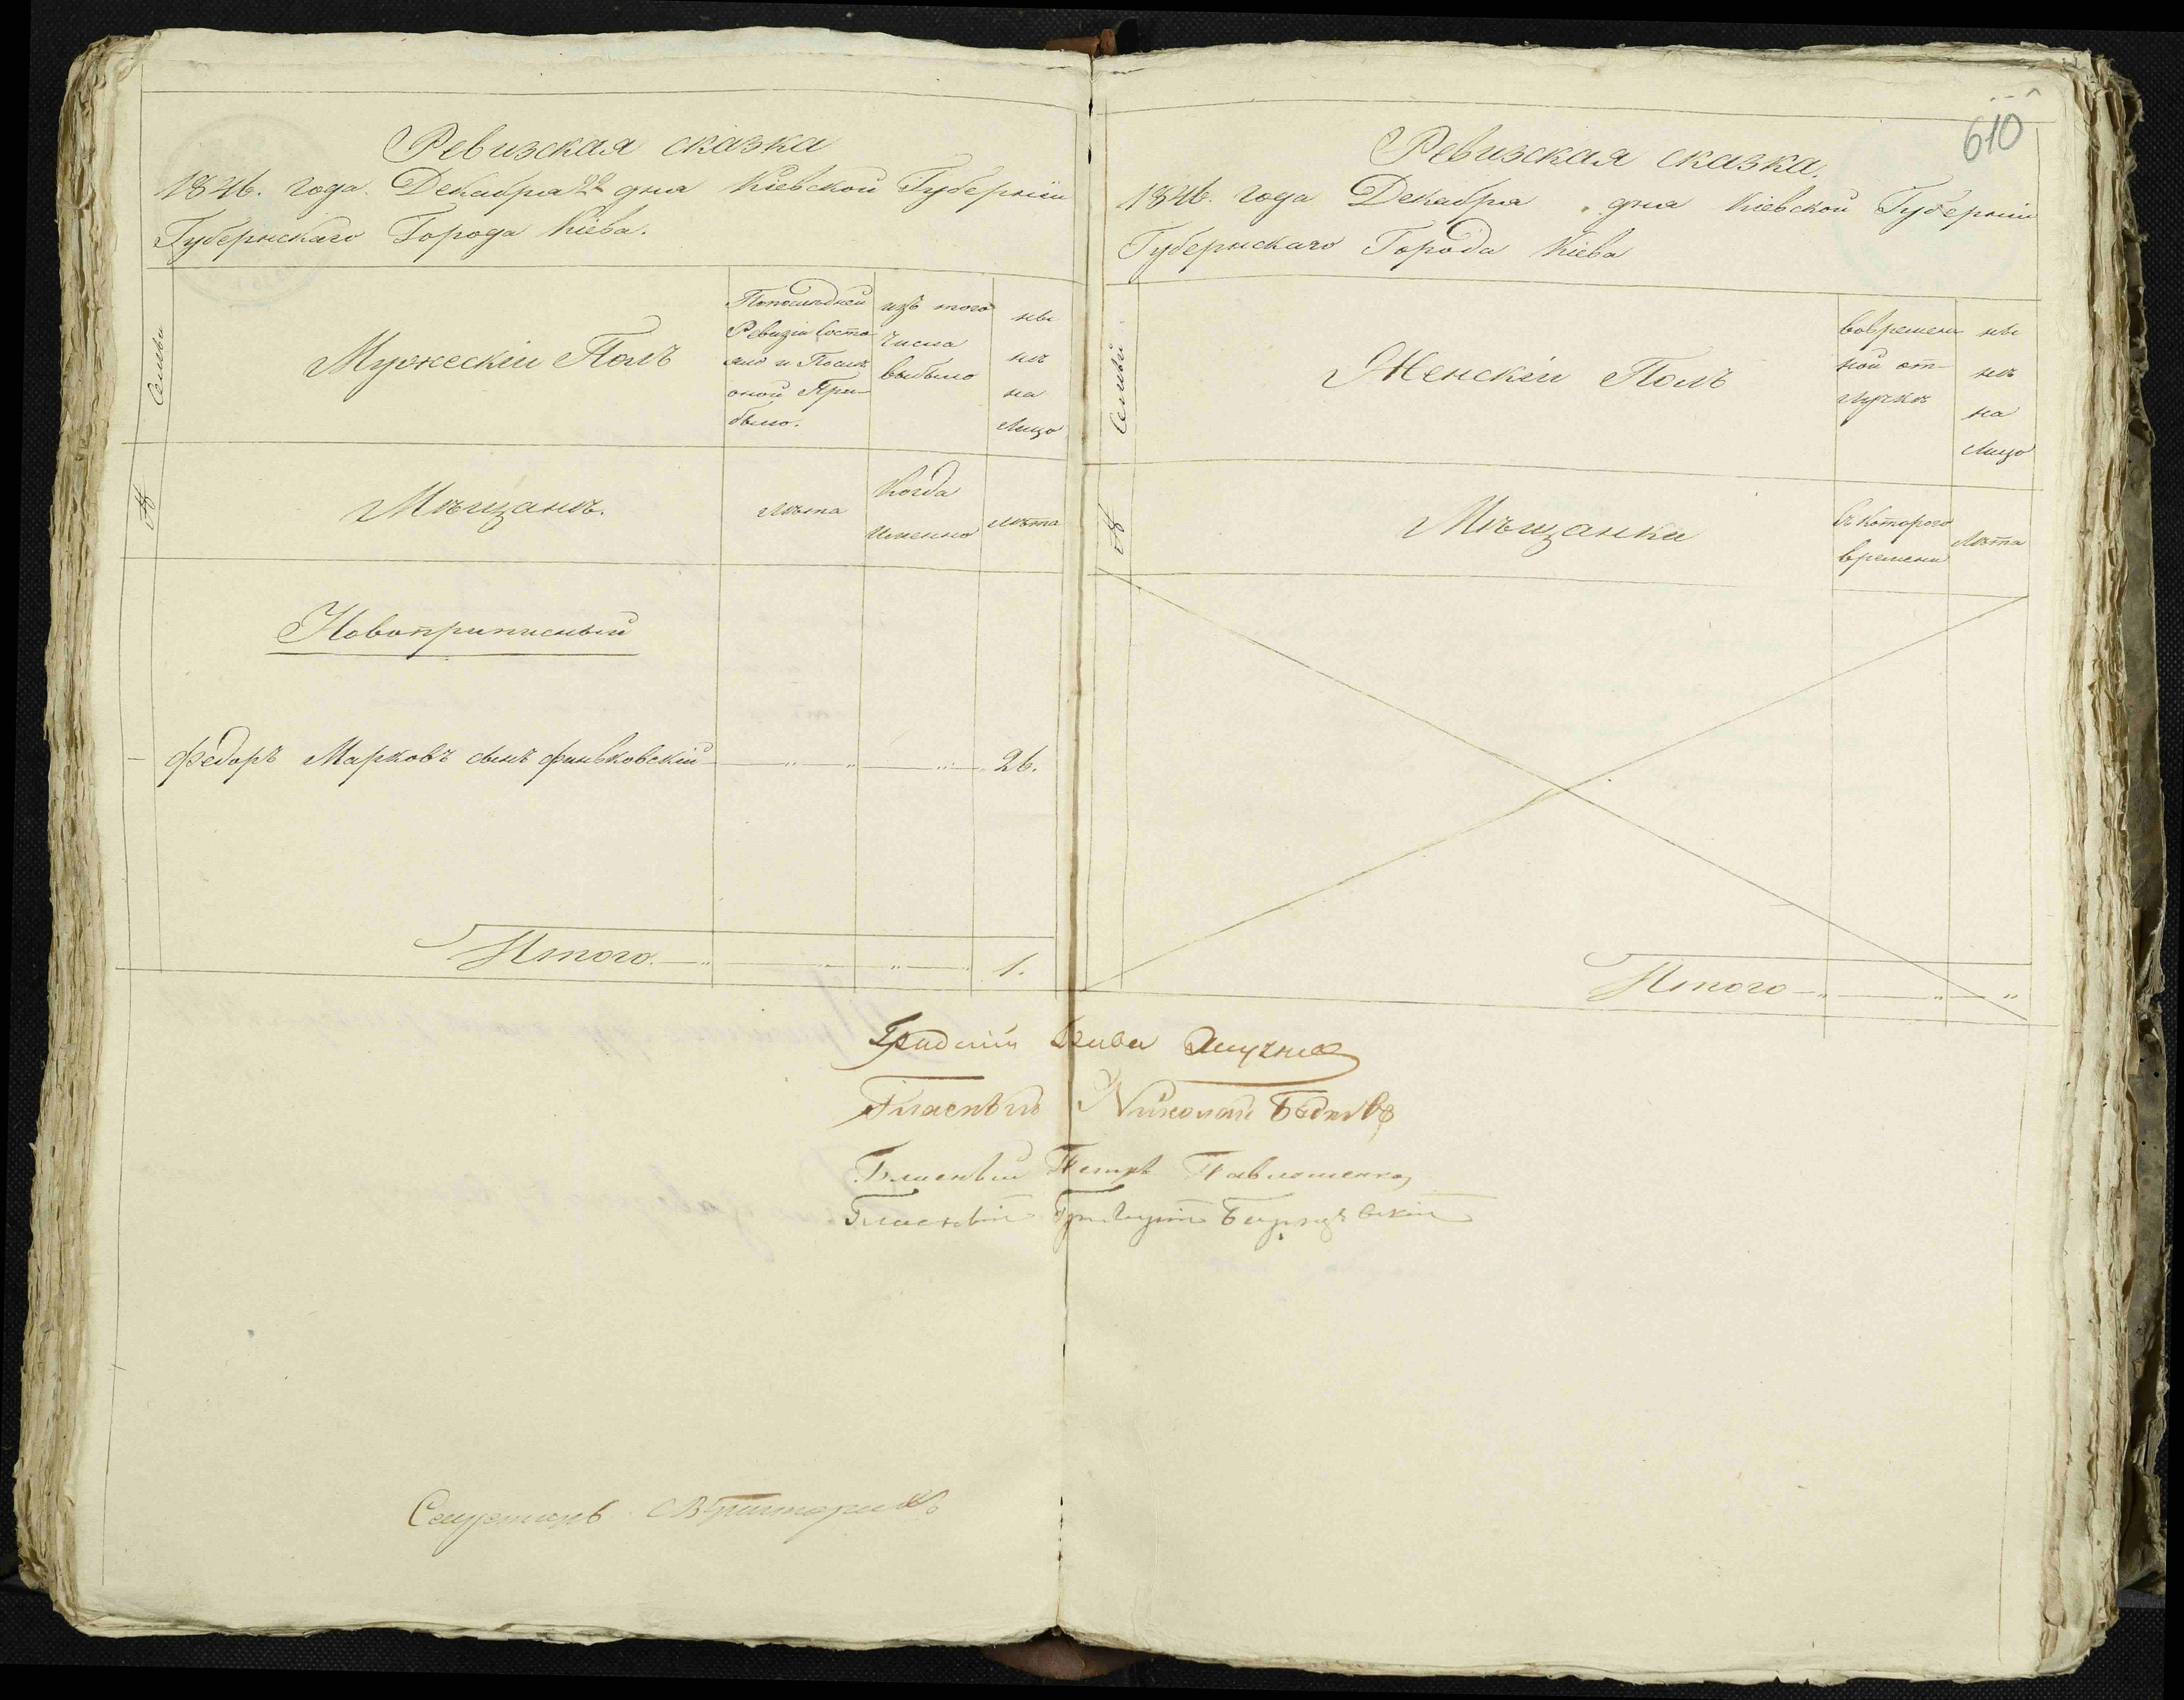 Ревизская сказка
1846. года. Декабря 22 дня Кіевской Губерніи
Губернскаго Города Кіева.
№ Семьи
Мужескій Полъ
Попослѣдней
Ревизіи состо
яло и Послѣ
оной При-
было.
изъ того
числа
выбыло
ны
нѣ
на
Лицо
Мѣщанъ.
Лѣта
Когда
Именно
Лѣта
Новоприписный
Федоръ Марковъ сынъ Финьковскій
26.
Итого
1.
610
Ревизская сказка.
1846. года Декабря дня Кіевской Губерніи
Губернскаго Города Кіева
№ Семьи
Женскій Полъ
Вовремен
ной от-
лучкѣ
ны
нѣ
на
Лицо
Мѣщанки
Съ Котораго
времени
Лѣта
Итого
Глава
Гласный Николай
Гласный Петръ Павлошенко
Гласный Григорій
Секретарь